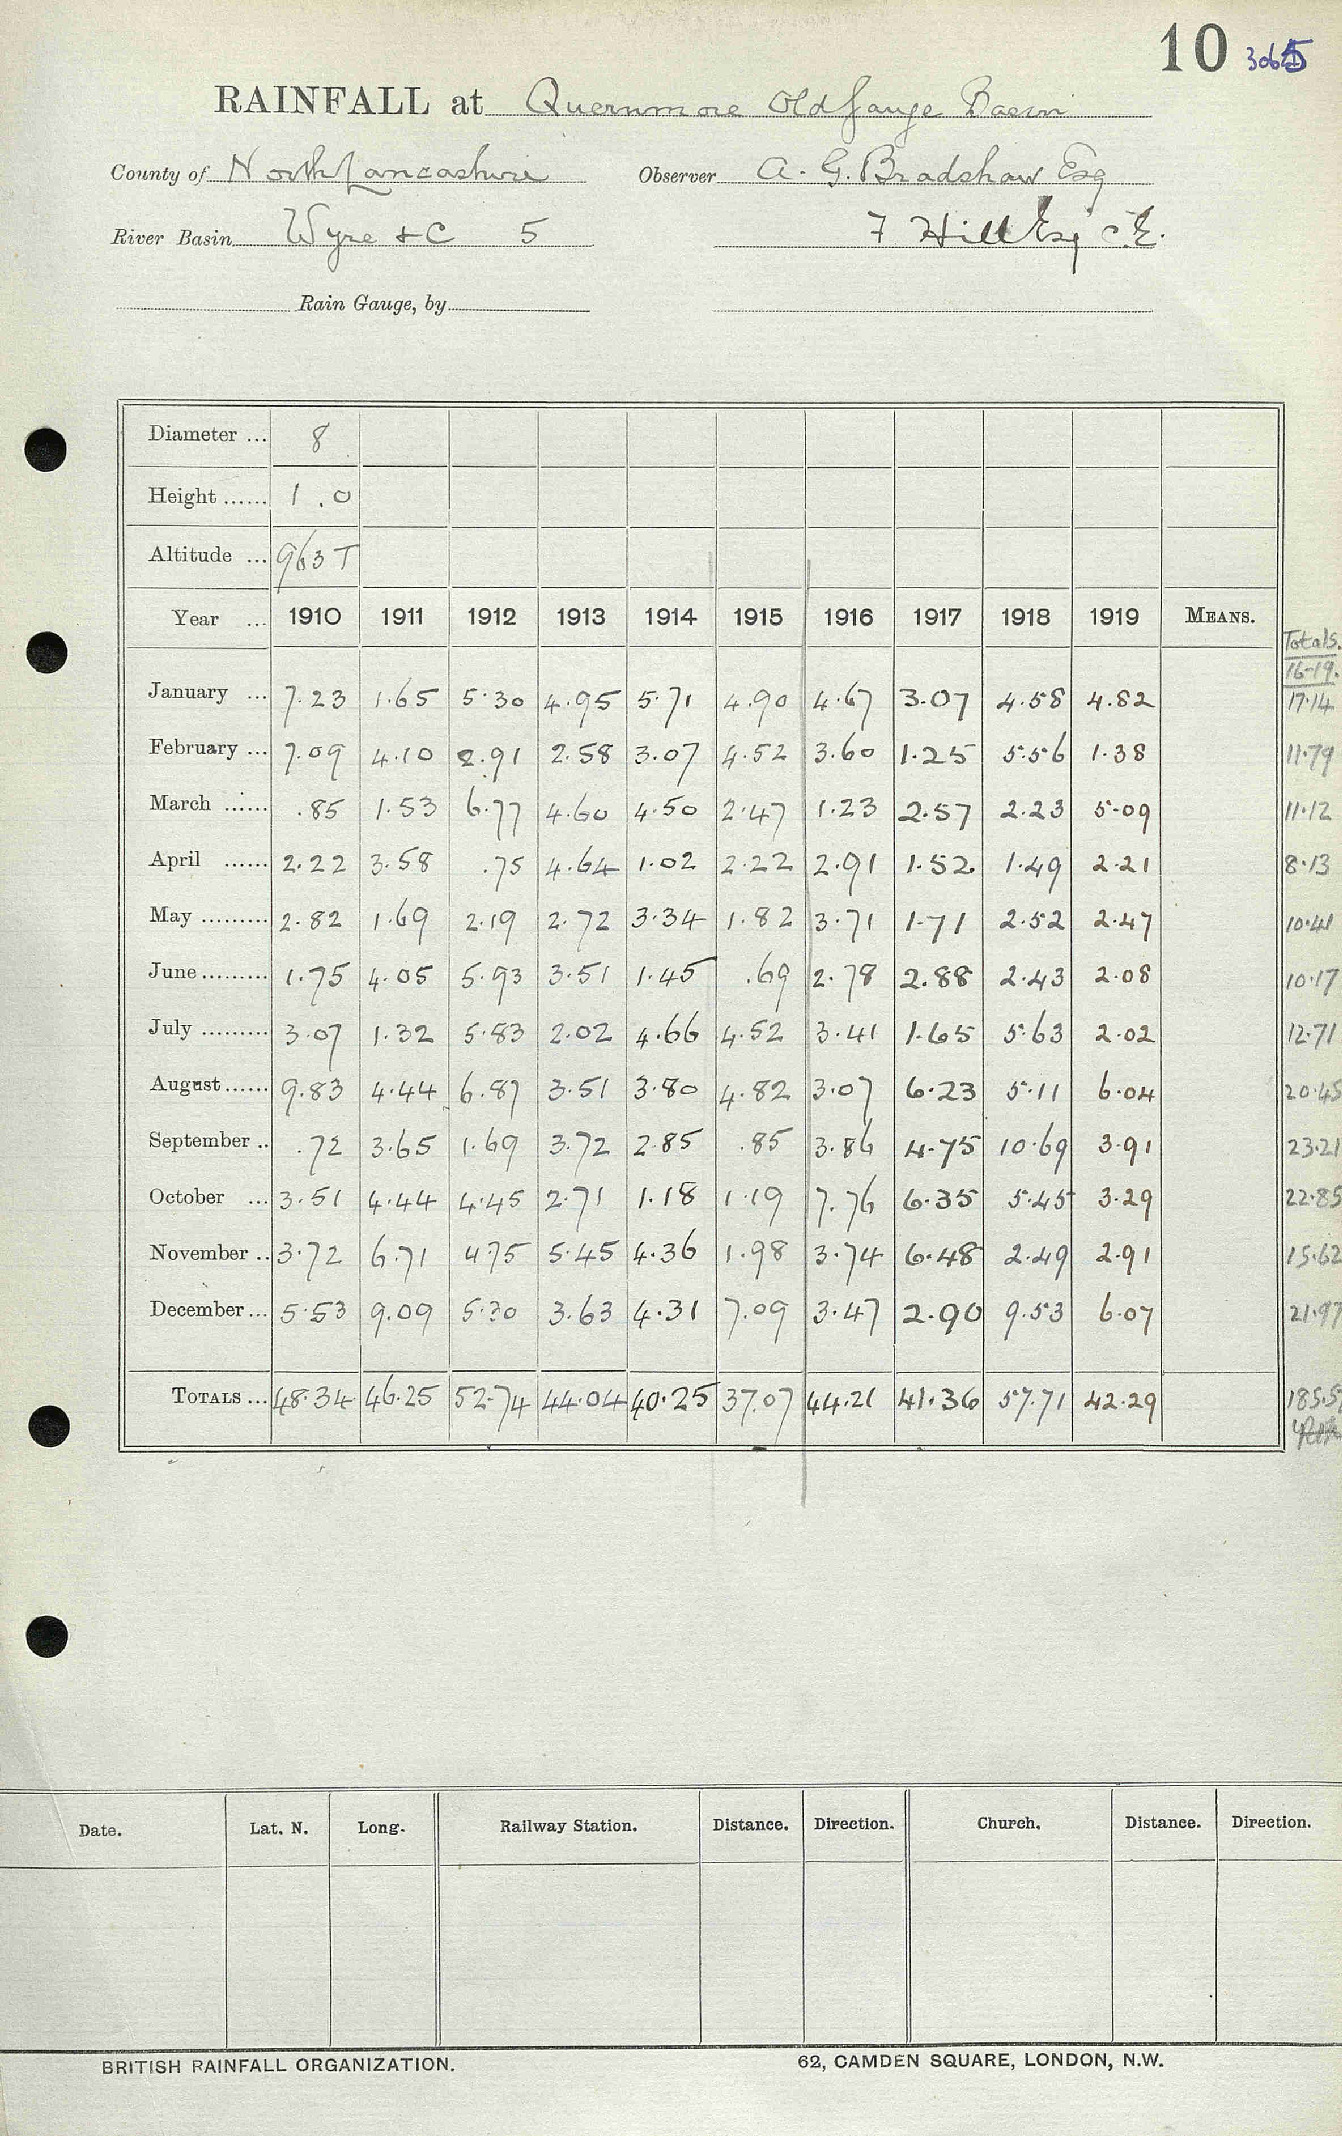 10 3065
RAINFALL at Quernmore Old Gauge Basin
County of North Lancashire Observer A. G. Bradshaw Esq
River Basin Wyre & C 5 F Hill Esq C.E.
Rain Gauge, by
Diameter ... 8
Height ...... 1.0
Altitude ... 963 T
Year ... 1910 1911 1912 1913 1914 1915 1916 1917 1918 1919 MEANS. Totals.
16-19.
January ... 7.23 1.65 5.30 4.95 5.71 4.90 4.67 3.07 4.58 4.82 17.14
February ... 7.09 4.10 2.91 2.58 3.07 4.52 3.60 1.25 5.56 1.38 11.79
March ...... .85 1.53 6.77 4.60 4.50 2.47 1.23 2.57 2.23 5.09 11.12
April ...... 2.22 3.58 .75 4.64 1.02 2.22 2.91 1.52 1.49 2.21 8.13
May ......... 2.82 1.69 2.19 2.72 3.34 1.82 3.71 1.71 2.52 2.47 10.41
June ......... 1.75 4.05 5.93 3.51 1.45 .69 2.78 2.88 2.43 2.08 10.17
July ......... 3.07 1.32 5.83 2.02 4.66 4.52 3.41 1.65 5.63 2.02 12.71
August ...... 9.83 4.44 6.87 3.51 3.80 4.82 3.07 6.23 5.11 6.04 20.45
September .. .72 3.65 1.69 3.72 2.85 .85 3.86 4.75 10.69 3.91 23.21
October ... 3.51 4.44 4.45 2.71 1.18 1.19 7.76 6.35 5.45 3.29 22.85
November .. 3.72 6.71 4.75 5.45 4.36 1.98 3.74 6.48 2.49 2.91 15.62
December ... 5.53 9.09 5.30 3.63 4.31 7.09 3.47 2.90 9.53 6.07 21.97
TOTALS ... 48.34 46.25 52.74 44.04 40.25 37.07 44.21 41.36 57.71 42.29 185.5
Date. Lat. N. Long. Railway Station. Distance. Direction. Church. Distance. Direction.
BRITISH RAINFALL ORGANIZATION. 62, CAMDEN SQUARE, LONDON, N.W.